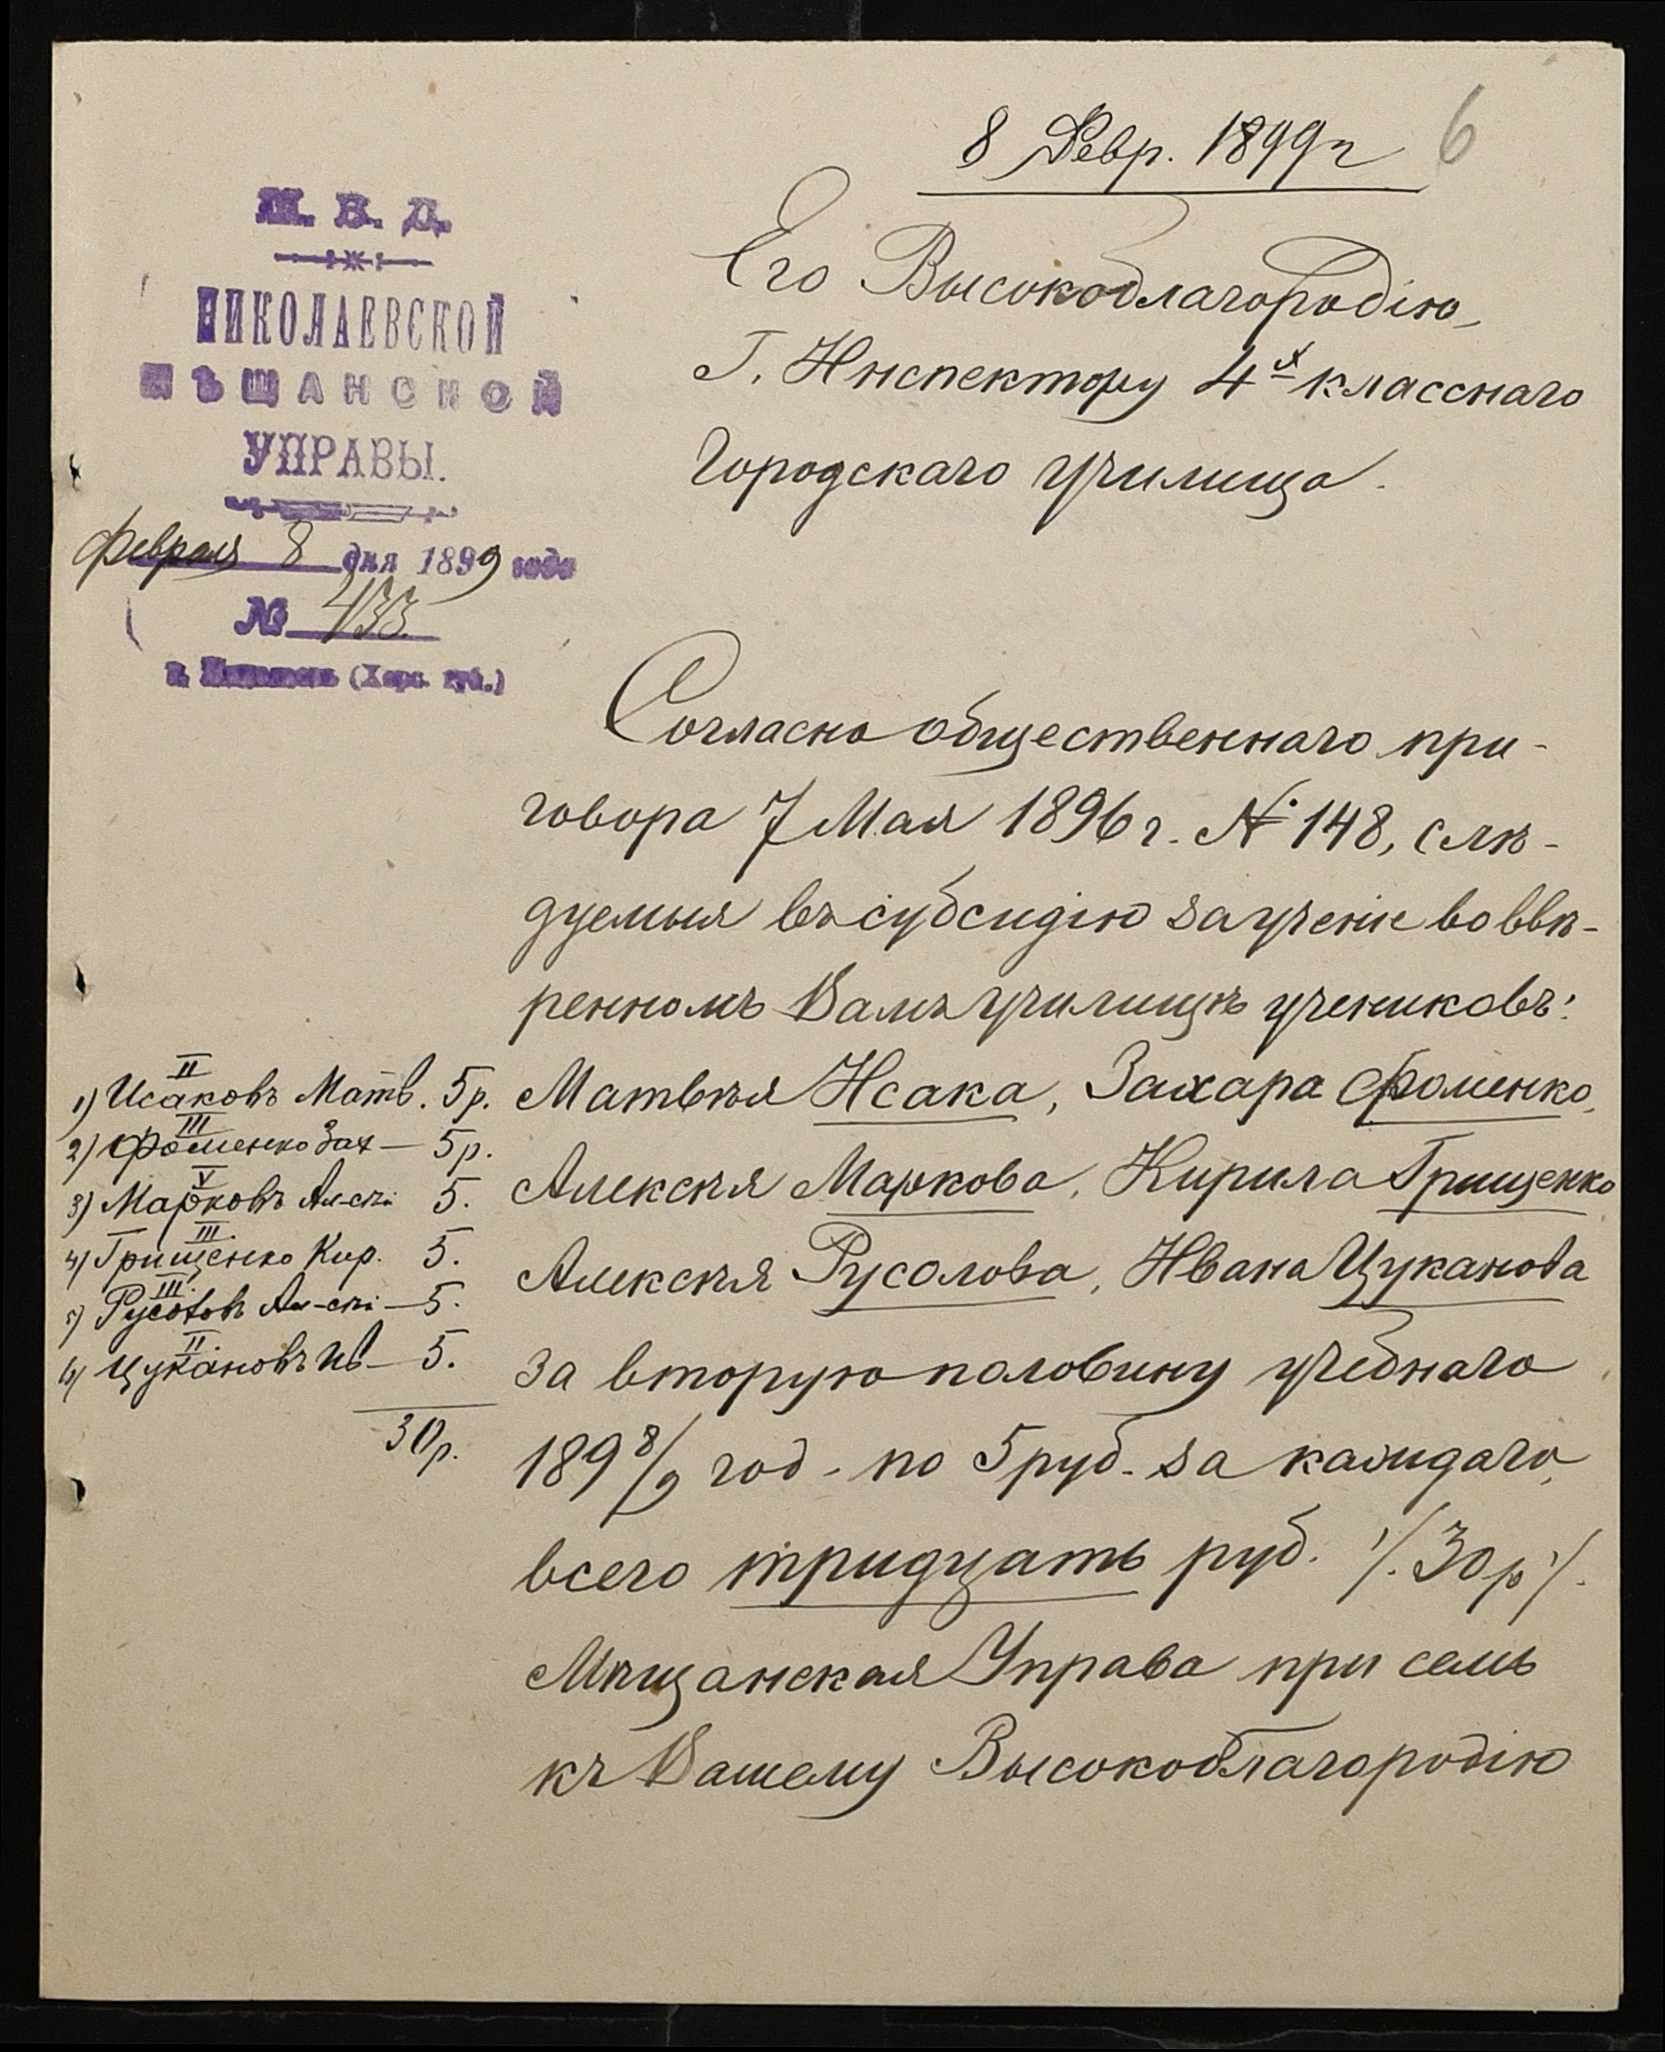 8 Февр. 1899 г
6
М. В. Д.
НИКОЛАЕВСКОЙ
МѢЩАНСКОЙ
УПРАВЫ.
Февраля 8 дня 1899 года
№ 433
г. Николаевъ (Херс. губ.)
Его Высокоблагородію,
Г. Инспектору 4х класснаго
Городскаго Училища.
Согласно общественнаго при-
говора 7 Мая 1896 г. № 148, слѣ-
дуемыя въ субсидію за ученіе во ввѣ-
ренномъ Вамъ училищѣ учениковъ:
Матвѣя Исака, Захара Фоменко,
Алексѣя Маркова, Кирила Грищенко
Алексѣя Русолова, Ивана Цуканова
за вторую половину учебнаго
189 8/9 год. по 5 руб. за каждаго,
всего тридцать руб. ./. 30 р ./.
Мѣщанская Управа при семъ
къ Вашему Высокоблагородію
II
1) Исаковъ Матв. 5 р.
III
2) Фоменко Зах — 5 р.
V
3) Марковъ Ал-сѣй 5.
III
4) Грищенко Кир. 5.
III
5) Русоловъ Ал-сѣй — 5.
II
6) Цукановъ Ив — 5.
30 р.